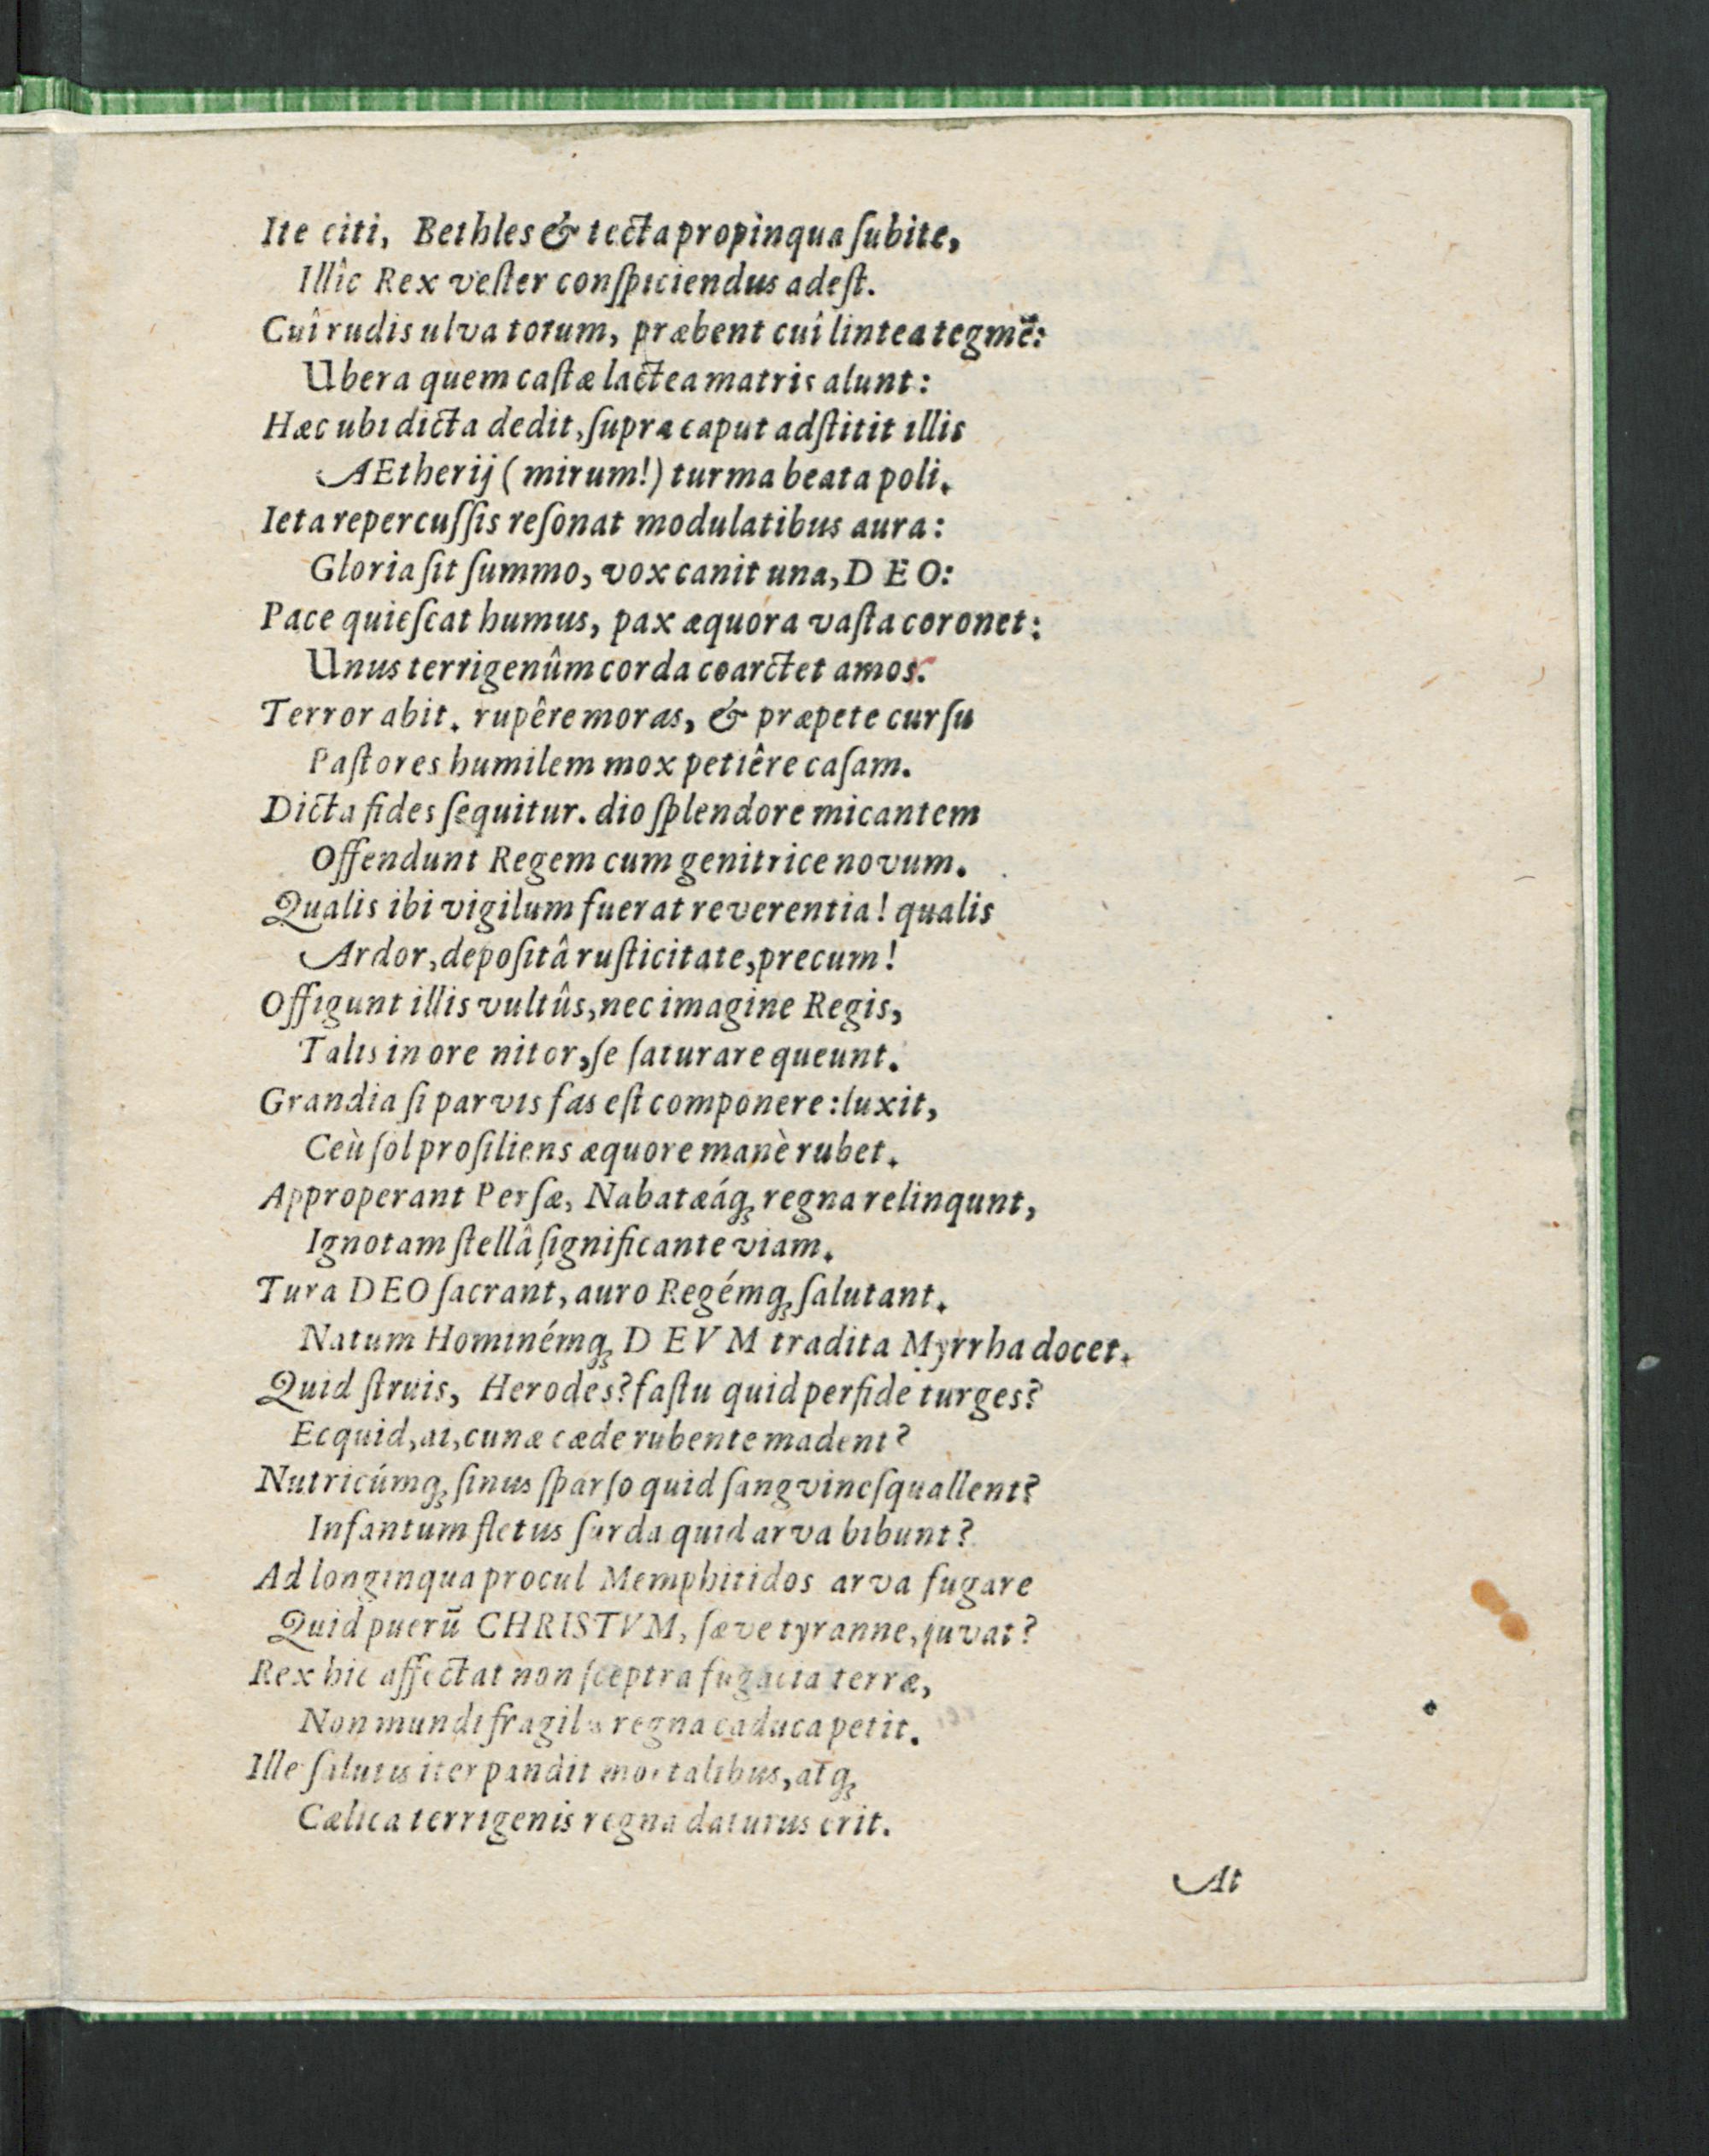 Ite citi, Bethles & tecta propinqua ſubite,
Illîc Rex veſter conſpiciendus adeſt.
Cuî rudis ulva torum, præbent cuî lintea tegmē:
Ubera quem caſtæ lactea matris alunt:
Hæc ubi dicta dedit, ſupra caput adſtitit illis
AEtherij (mirum!) turma beata poli.
Icta repercuſſis reſonat modulatibus aura:
Gloria ſit ſummo, vox canit una, DEO:
Pace quieſcat humus, pax æquora vaſta coronet:
Unus terrigenûm corda coarctet amor.
Terror abit. rupêre moras, & præpete curſu
Paſtores humilem mox petiêre caſam.
Dicta fides ſequitur. dio ſplendore micantem
Offendunt Regem cum genitrice novum.
Qualis ibi vigilum fuerat reverentia! qualis
Ardor, depoſitâ ruſticitate, precum!
Offigunt illis vultûs, nec imagine Regis,
Talis in ore nitor, ſe ſaturare queunt.
Grandia ſi parvis fas eſt componere: luxit,
Ceù ſol proſiliens æquore manè rubet.
Approperant Perſæ, Nabatæáq; regna relinqunt,
Ignotam ſtellâ ſignificante viam.
Tura DEO ſacrant, auro Regémq; ſalutant.
Natum Hominémq; DEVM tradita Myrrha docet.
Quid ſtruis, Herodes? faſtu quid perfide turges?
Ecquid, ai, cunæ cæde rubente madent?
Nutricúmq; ſinus ſparſo quid ſangvine ſquallent?
Infantum fletus ſurda quid arva bibunt?
Ad longinqua procul Memphitidos arva fugare
Quid puerū CHRISTVM, ſæve tyranne, juvat?
Rex hic affectat non ſceptra fugacia terræ,
Non mundi fragilis regna caduca petit.
Ille ſalutis iter pandit mortalibus, atq;
Cælica terrigenis regna daturus erit.
At